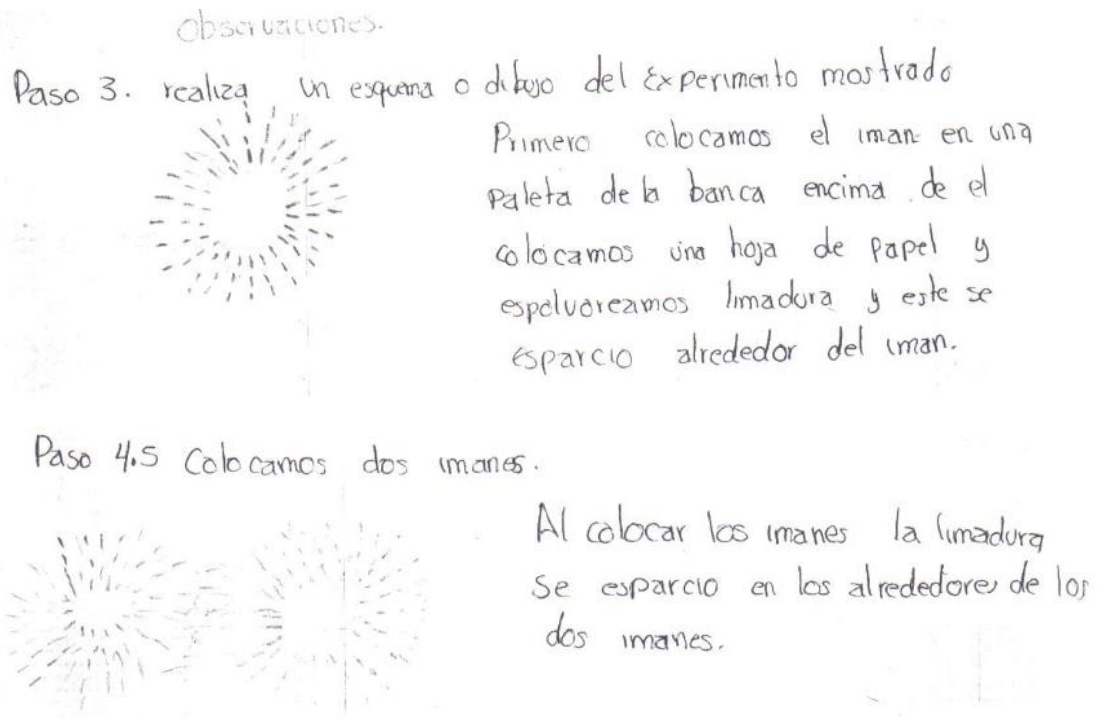 Observaciones.
Paso 3. realiza un esquema o dibujo del Experimento mostrado
Primero colocamos el iman en una
paleta de la banca encima de el
colocamos una hoja de papel y
espolvoreamos limadura y este se
esparcio alrededor del iman.
Paso 4.5 Colocamos dos imanes.
Al colocar los imanes la limadura
se esparcio en los alrededores de los
dos imanes.